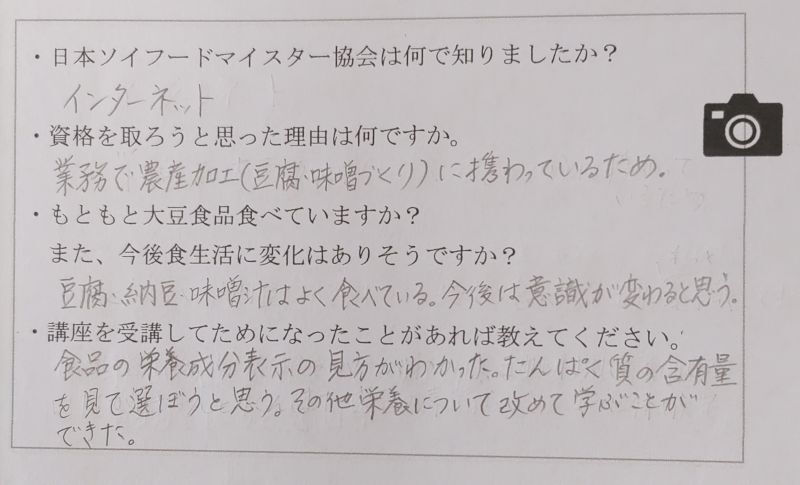 ・日本ソイフードマイスター協会は何で知りましたか？
インターネット
・資格を取ろうと思った理由は何ですか。
業務で農産加工(豆腐・味噌づくり)に携わっているため。
・もともと大豆食品食べていますか？
また、今後食生活に変化はありそうですか？
豆腐・納豆・味噌汁はよく食べている。今後は意識が変わると思う。
・講座を受講してためになったことがあれば教えてください。
食品の栄養成分表示の見方がわかった。たんぱく質の含有量
を見て選ぼうと思う。その他栄養について改めて学ぶことが
できた。